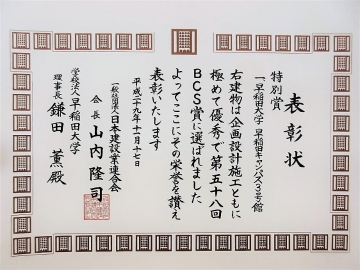 表彰状
特別賞
「早稲田大学 早稲田キャンパス3号館
右建物は企画設計施工ともに
極めて優秀で第五十八回
BCS賞に選ばれました
よってここにその栄誉を讃え
表彰いたします
平成二十九年十一月十七日
一般社団法人日本建設業連合会
会長 山内隆司
学校法人 早稲田大学
理事長 鎌田 薫殿